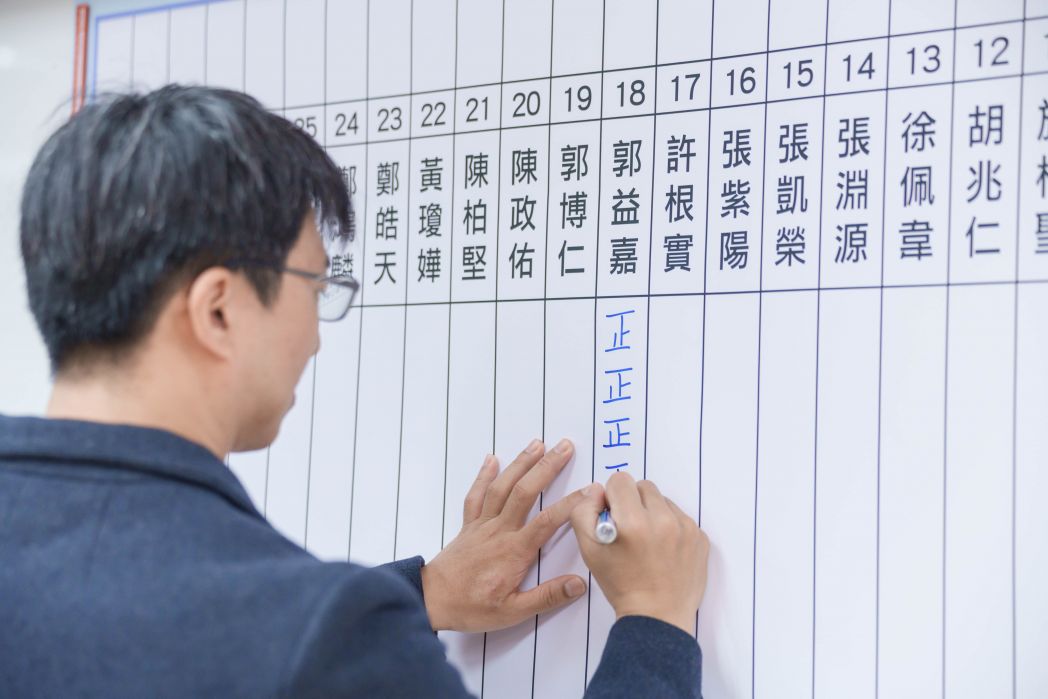 12
胡兆仁
13
徐佩韋
14
張淵源
15
張凱榮
16
張紫陽
17
許根實
18
郭益嘉
正正正一
19
郭博仁
20
陳政佑
21
陳柏堅
22
黃瓊嬅
23
鄭皓天
24
25